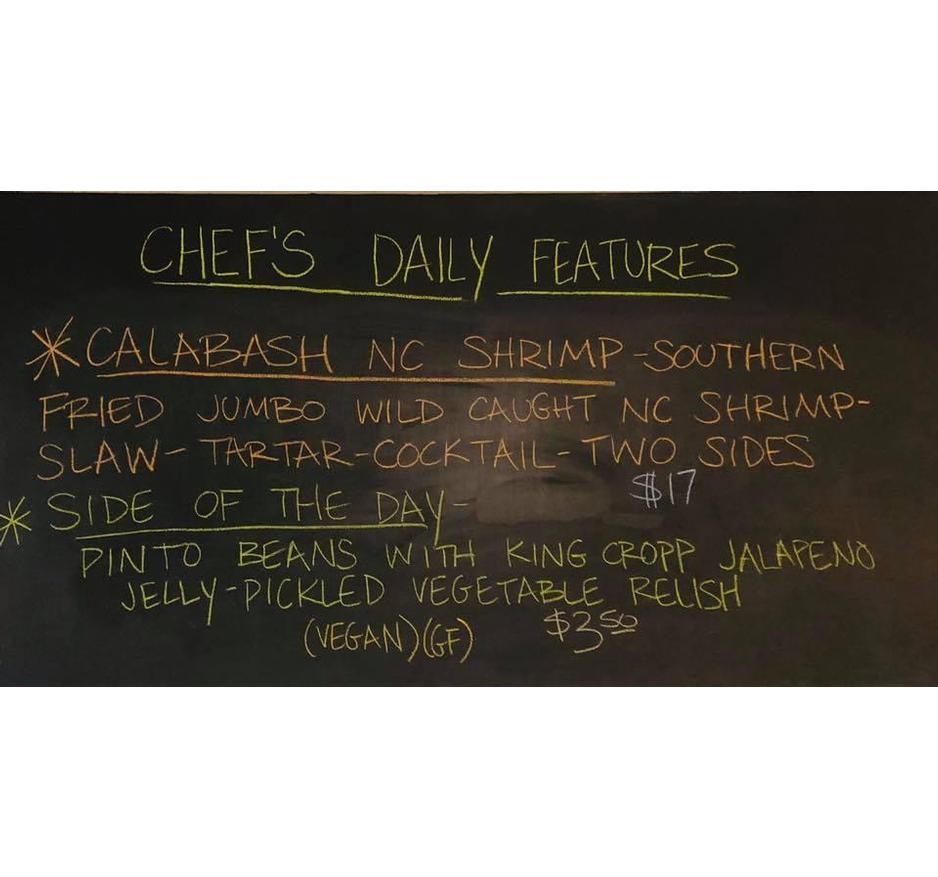 CHEF'S DAILY FEATURES
* CALABASH NC SHRIMP - SOUTHERN
FRIED JUMBO WILD CAUGHT NC SHRIMP-
SLAW - TARTAR - COCKTAIL - TWO SIDES
$17
* SIDE OF THE DAY -
PINTO BEANS WITH KING CROPP JALAPENO
JELLY - PICKLED VEGETABLE RELISH
(VEGAN) (GF) $3.50